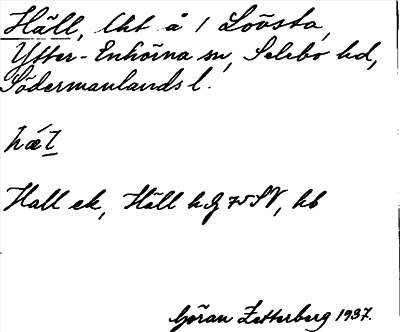 Häll, lht å 1 Lövsta,
Ytter-Enhörna sn, Selebo hd,
Södermanlands l.
hǽl
Hall ek, Häll h.g 75 SV, hb
Göran Zetterberg 1937.